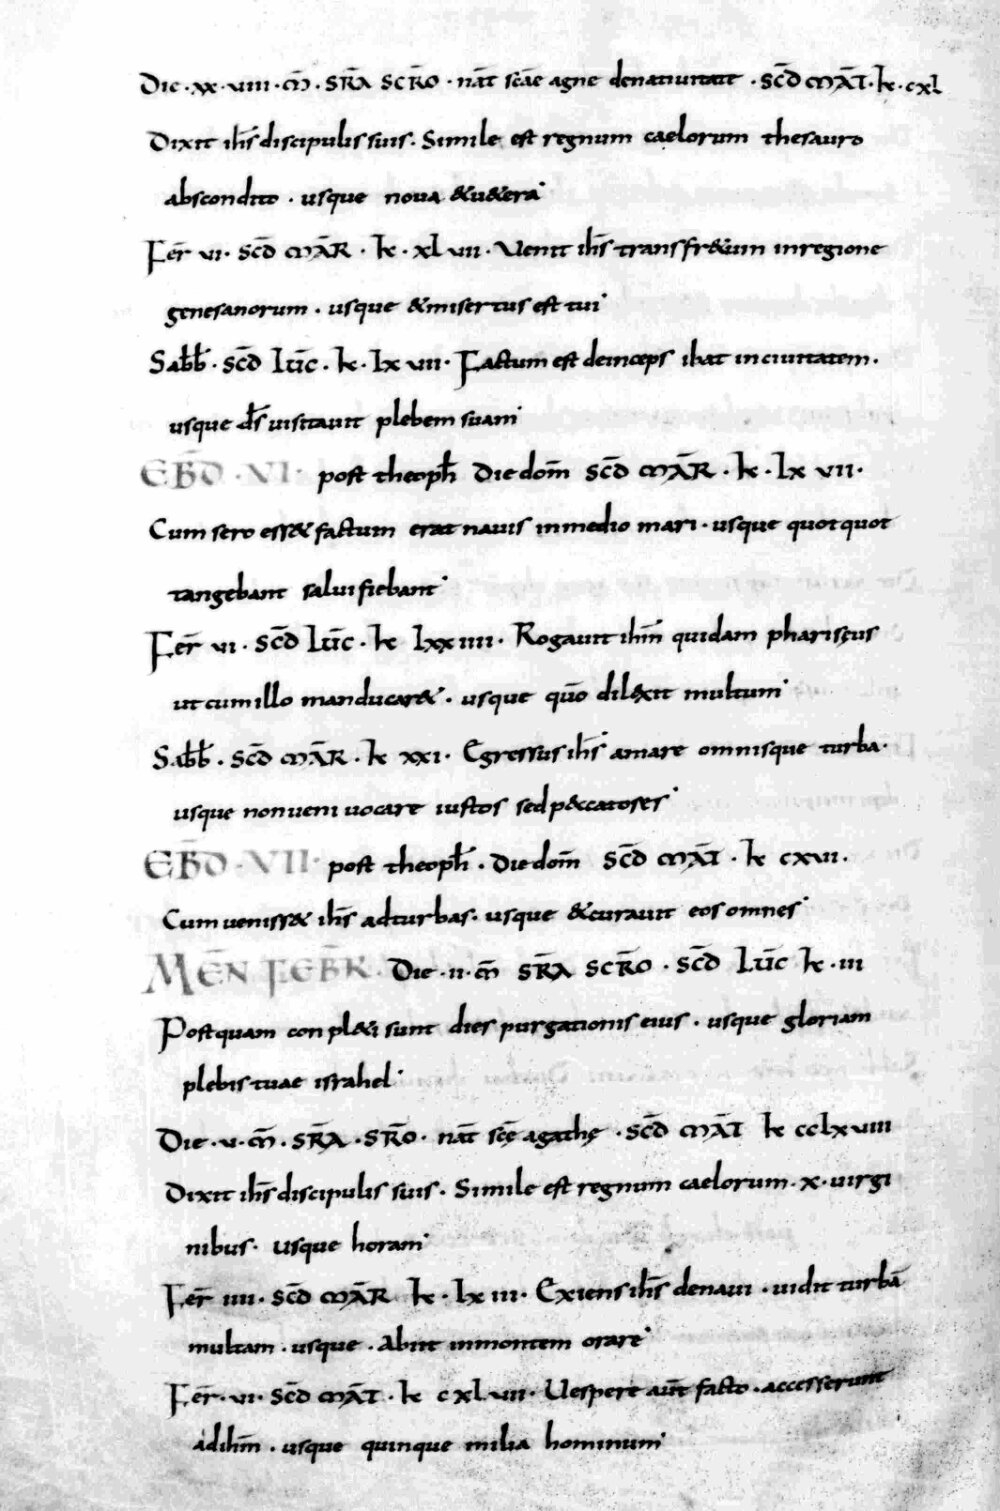 Die · xx · viii · m̄ · SR̄A SCR̄O · nat̄ sc̄ae agne denatiuitate · SC̄D MĀT · k̄ · cxl
Dixit ih̄s discipulis suis · Simile est regnum caelorum thesauro
abscondito · usque noua &u&era
Fer̄ vi · SC̄D MĀR · k̄ · xl vii · Uenit ih̄s trans fr&um inregione
genesanorum · usque &misertus est tui
Sab̄b̄ · SC̄D LUC̄ · k̄ · lx vii · Factum est deinceps ibat inciuitatem ·
usque d̄s uisitauit plebem suam
EB̄D · VI · post theoph̄ Die dom̄ SC̄D MĀR · k̄ · lx vii ·
Cum sero ess& factum erat nauis inmedio mari · usque quotquot
tangebant salui fiebant
Fer̄ vi · SC̄D LUC̄ · k̄ lxxiiii · Rogauit ih̄m quidam pharisęus
ut cum illo manducar& · usque quō dilexit multum
Sab̄b̄ · SC̄D MĀR · k̄ xxi · Egressus ih̄s amare omnisque turba ·
usque nonueni uocare iustos sed p&ccatores
EB̄D · VII · post theoph̄ · Die dom̄ SC̄D MĀT · k̄ cxvi ·
Cum ueniss& ih̄s adturbas · usque &curauit eos omnes
MEN̄ FEB̄R · Die · ii · m̄ SR̄A SCR̄O · SC̄D LUC̄ k̄ · iii
Postquam conpl&i sunt dies purgationis eius · usque gloriam
plebis tuae israhel
Die · v · m̄ · SR̄A · SR̄O · nat̄ sc̄ę agathę · SC̄D MĀT k̄ cclxviii
Dixit ih̄s discipulis suis · Simile est regnum caelorum · x · uirgi
nibus · usque horam
Fer̄ iiii · SC̄D MĀR k̄ · lx iii · Exiens ih̄s denaui · uidit turbā
multam · usque · Abiit inmontem orare
Fer̄ · vi · SC̄D MĀT · k̄ cxlvii · Uespere aut̄ facto · accesserunt
adih̄m · usque quinque milia hominum